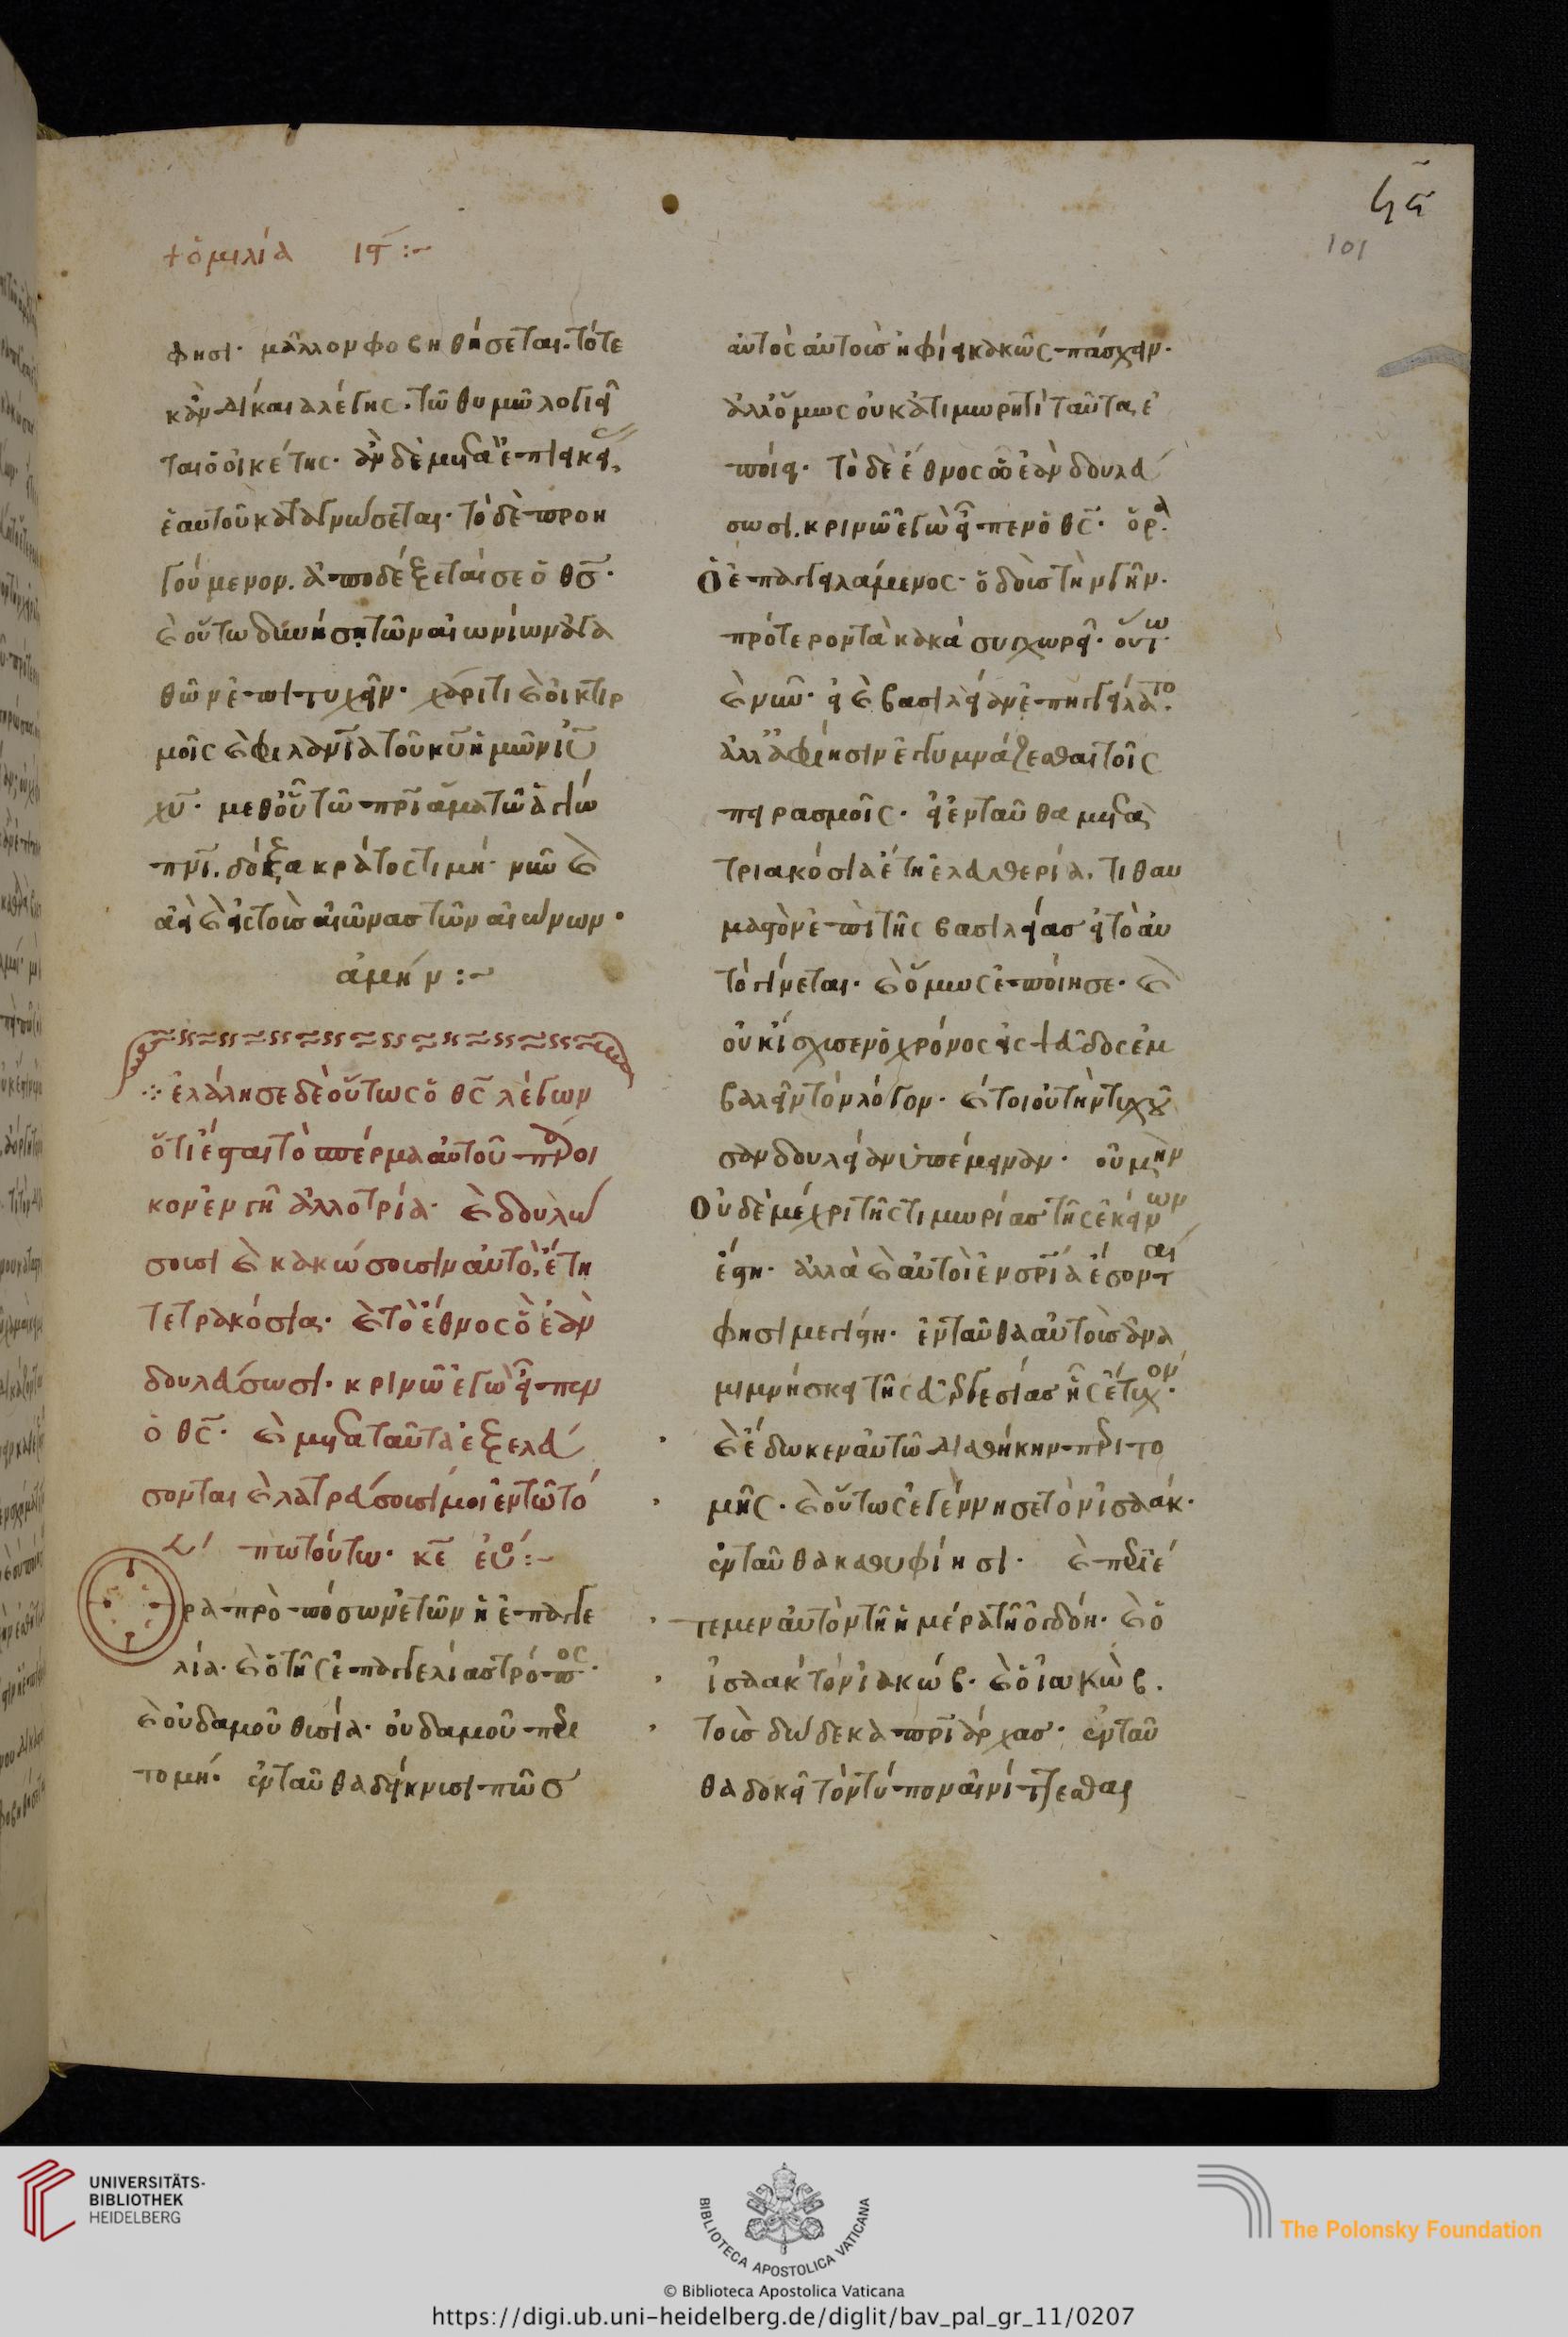 ϟα
101
+ ὁμιλία ιϛ :~
φησὶ· μᾶλλον φοβηθήσεται. τότε
κἂν δίκαια λέγης. τῶ θυμῶ λογιεῖ
ται ὁ οἰκέτης. ἂν δὲ μετὰ ἐπιεικείας,
ἑαυτοῦ καταγνώσεται. τὸ δὲ προη
γούμενον. ἀποδέξεταί σε ὁ θσ̅.
καὶ οὕτω δυνήσῃ τῶν αἰωνίων ἀγα
θῶν ἐπιτυχεῖν. χάριτι καὶ οἰκτιρ
μοῖς καὶ φιλαν̅ία τοῦ κυ̅ ἡμῶν ιυ̅
χυ̅. μεθ οὗ τῶ πρι̅ ἅμα τῶ ἁγίω
πνι̅. δόξα κράτος τιμή. νῦν καὶ
ἀεὶ καὶ εἰς τοὺς αἰῶνας τῶν αἰώνων.
ἀμήν :~
ἐλάλησε δὲ οὕτως ὁ θς̅ λέγων
ὅτι ἔσται τὸ σπέρμα αὐτοῦ πάροι
κον ἐν γῆ ἀλλοτρία. καὶ δουλώ
σουσι καὶ κακώσουσιν αὐτὸ, ἔτη
τετρακόσια. καὶ τὸ ἔθνος ὃ ἐὰν
δουλεύσωσι. κρινῶ ἐγὼ εἶπεν
ὁ θς̅. καὶ μετὰ ταῦτα ἐξελεύ
σονται καὶ λατρεύσουσί μοι ἐν τῶ τό
πω τούτω. κε̅
ρα πρὸ πόσων ἐτῶν ἡ ἐπαγγε
λία. καὶ ὁ τῆς ἐπαγγελίας τρόπος.
καὶ οὐδαμοῦ θυσία. οὐδαμοῦ περι
τομή. ἐνταῦθα δείκνυσι πῶς
αὐτὸς αὐτοὺς ἠφίει κακῶς πάσχειν.
ἀλλ ὅμως οὐκ ἀτιμωρητὶ ταῦτα, ἐ
ποίει. τὸ δὲ ἔθνος ὧ ἐὰν δουλεύ
σωσι. κρινῶ ἐγὼ εἶπεν ὁ θς̅. ὅρα
Ὁ ἐπαγγειλάμενος. ὁ δοὺς τὴν γῆν.
πρότερον τὰ κακὰ συγχωρεῖ. οὕτω
καὶ νῦν. εἰ καὶ βασιλείαν ἐπηγγείλατο.
ἀλλ ἀφίησιν ἐγγυμνάζεσθαι τοῖς
πειρασμοῖς. εἰ ἐνταῦθα μετὰ
τριακόσια ἔτη ἐλευθερία. τί θαυ
μαστὸν ἐπὶ τῆς βασιλείας εἰ τὸ αὐ
τὸ γίνεται. καὶ ὅμως ἐποίησε. καὶ
οὐκ ἴσχυσεν ὁ χρόνος εἰς ψεῦδος ἐμ
βαλεῖν τὸν λόγον. καίτοι οὐ τὴν τυχοῦ
σαν δουλείαν ὑπέμειναν. οὐ μὴν
Οὐδὲ μέχρι τῆς τιμωρίας τῆς ἐκείνων
ἔστη. ἀλλὰ καὶ αὐτοὶ ἐν σρ̅ία ἔσονται
φησὶ μεγίστη. ἐνταῦθα αὐτοὺς ἀνα
μιμνήσκει τῆς εὐεργεσίας ἧς ἔτυχον.
καὶ ἔδωκεν αὐτῶ διαθήκην περιτο
μῆς. καὶ οὕτως ἐγέννησε τὸν ἰσαάκ.
ἐνταῦθα καθυφίησι. καὶ περιέ
τεμεν αὐτὸν τῆ ἡμέρα τῆ ὀγδόη. καὶ ὁ
ἰσαὰκ τὸν ἰακώβ. καὶ ὁ ἰακὼβ.
τοὺς δώδεκα πρι̅άρχας. ἐνταῦ
θα δοκεῖ τὸν τύπον αἰνίττεσθαι
UNIVERSITÄTS-
BIBLIOTHEK
HEIDELBERG
BIBLIOTECA APOSTOLICA VATICANA
The Polonsky Foundation
© Biblioteca Apostolica Vaticana
https://digi.ub.uni-heidelberg.de/diglit/bav_pal_gr_11/0207